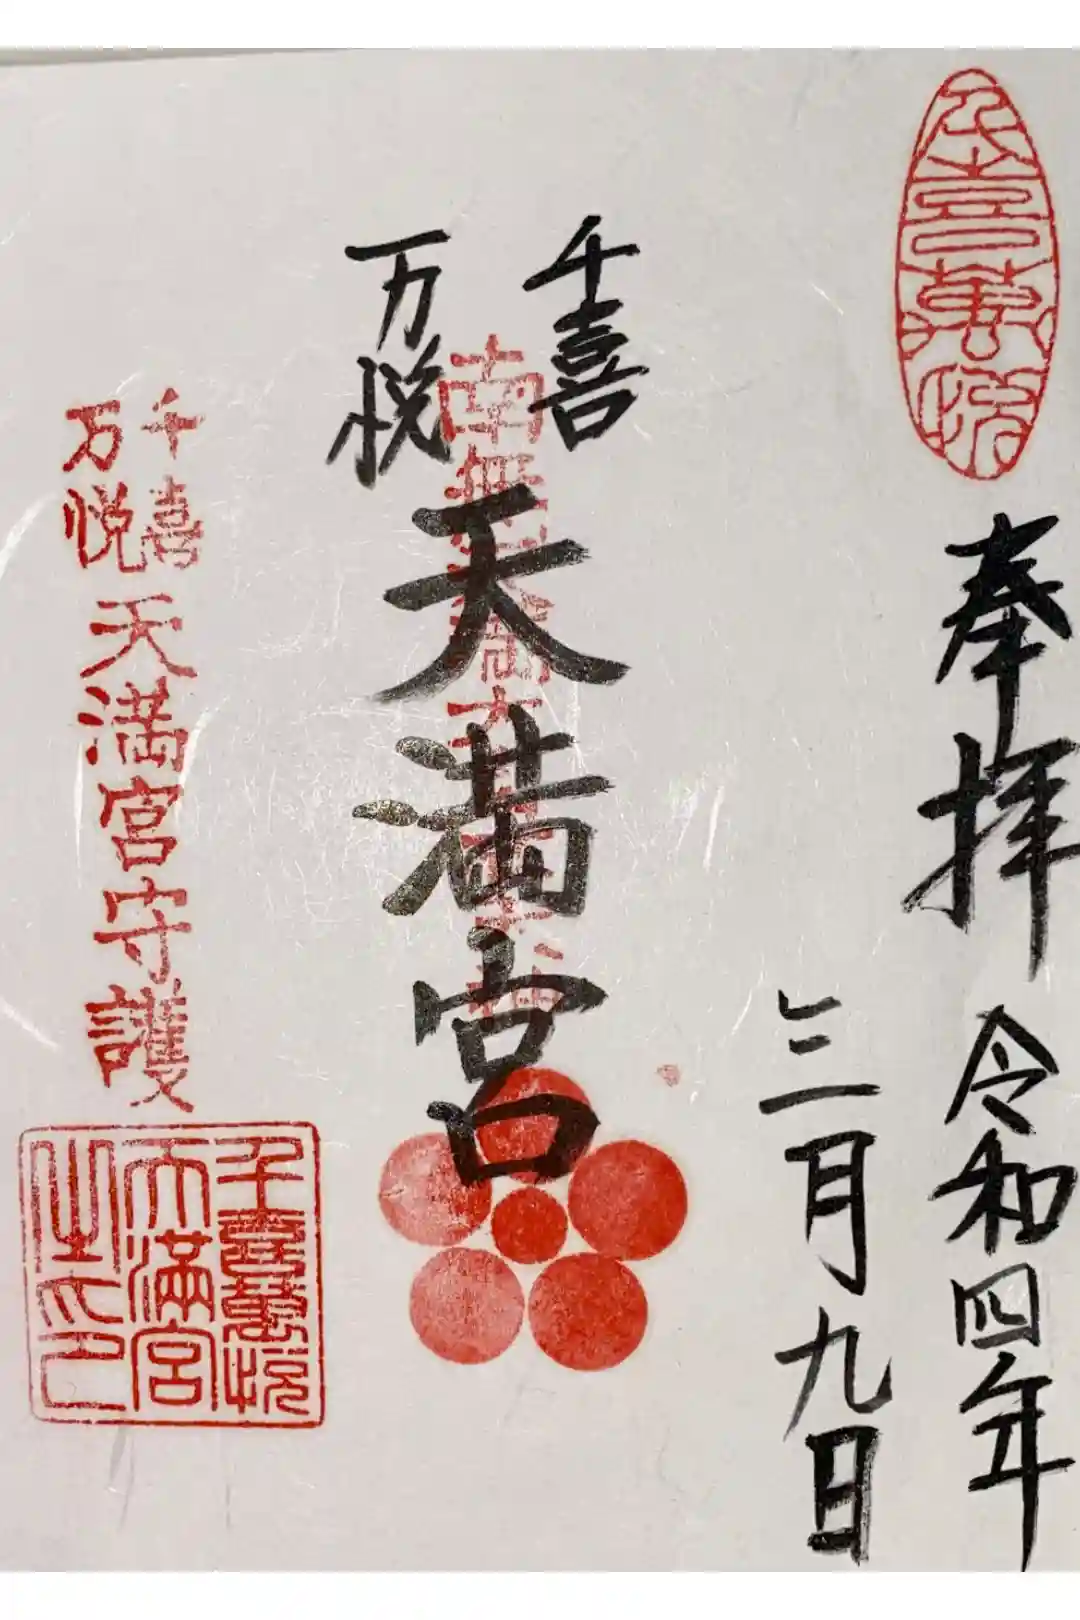 千喜萬悦
奉拝
令和四年
三月九日
千喜
万悦
天満宮
南無
千喜
万悦
天満宮守護
千喜萬悦
天満宮
之印